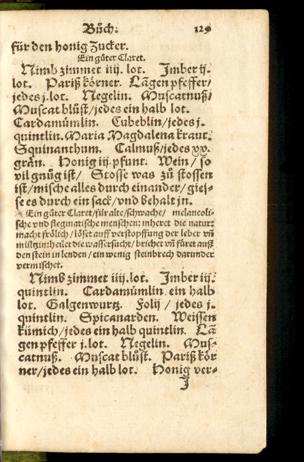 Bůch. 129
für den honig Zucker.
Ein gůter Claret.
Nimb zimmet iiij. lot. Imber ij.
lot. Pariß körner. Lãgen pfeffer/
jedes j. lot. Negelin. Muscatnuß/
Muscat blůst/ jedes ein halb lot.
Cardamůmlin. Cubeblin/ jedes j.
quintlin. Maria Magdalena kraut.
Squinanthum. Calmuß/ jedes xv.
grãn. Honig iij. pfunt. Wein/ so
vil gnůg ist/ Stosse was zů stossen
ist/ mische alles durch einander/ gies-
se es durch ein sack/ vnd behalt jn.
Ein gůter Claret/ für alte/ schwache/ melancoli-
sche vnd flegmatische menschen: inheret die natur:
macht frölich/ löset auff verstopffung der leber vñ
miltz: in heilet die wassersucht/ brichet vñ füret auß
den stein in lenden/ ein wenig steinbrech darunder
vermischet.
Nimb zimmet iiij. lot. Imber iij.
quintlin. Cardamůmlin ein halb
lot. Galgenwurtz. Folij / jedes j.
quintlin. Spicanarden. Weissen
kůmich/ jedes ein halb quintlin. Lã
gen pfeffer j. lot. Negelin. Mus-
catnuß. Muscat blůst. Pariß kör
ner/ jedes ein halb lot. Honig ver-
J